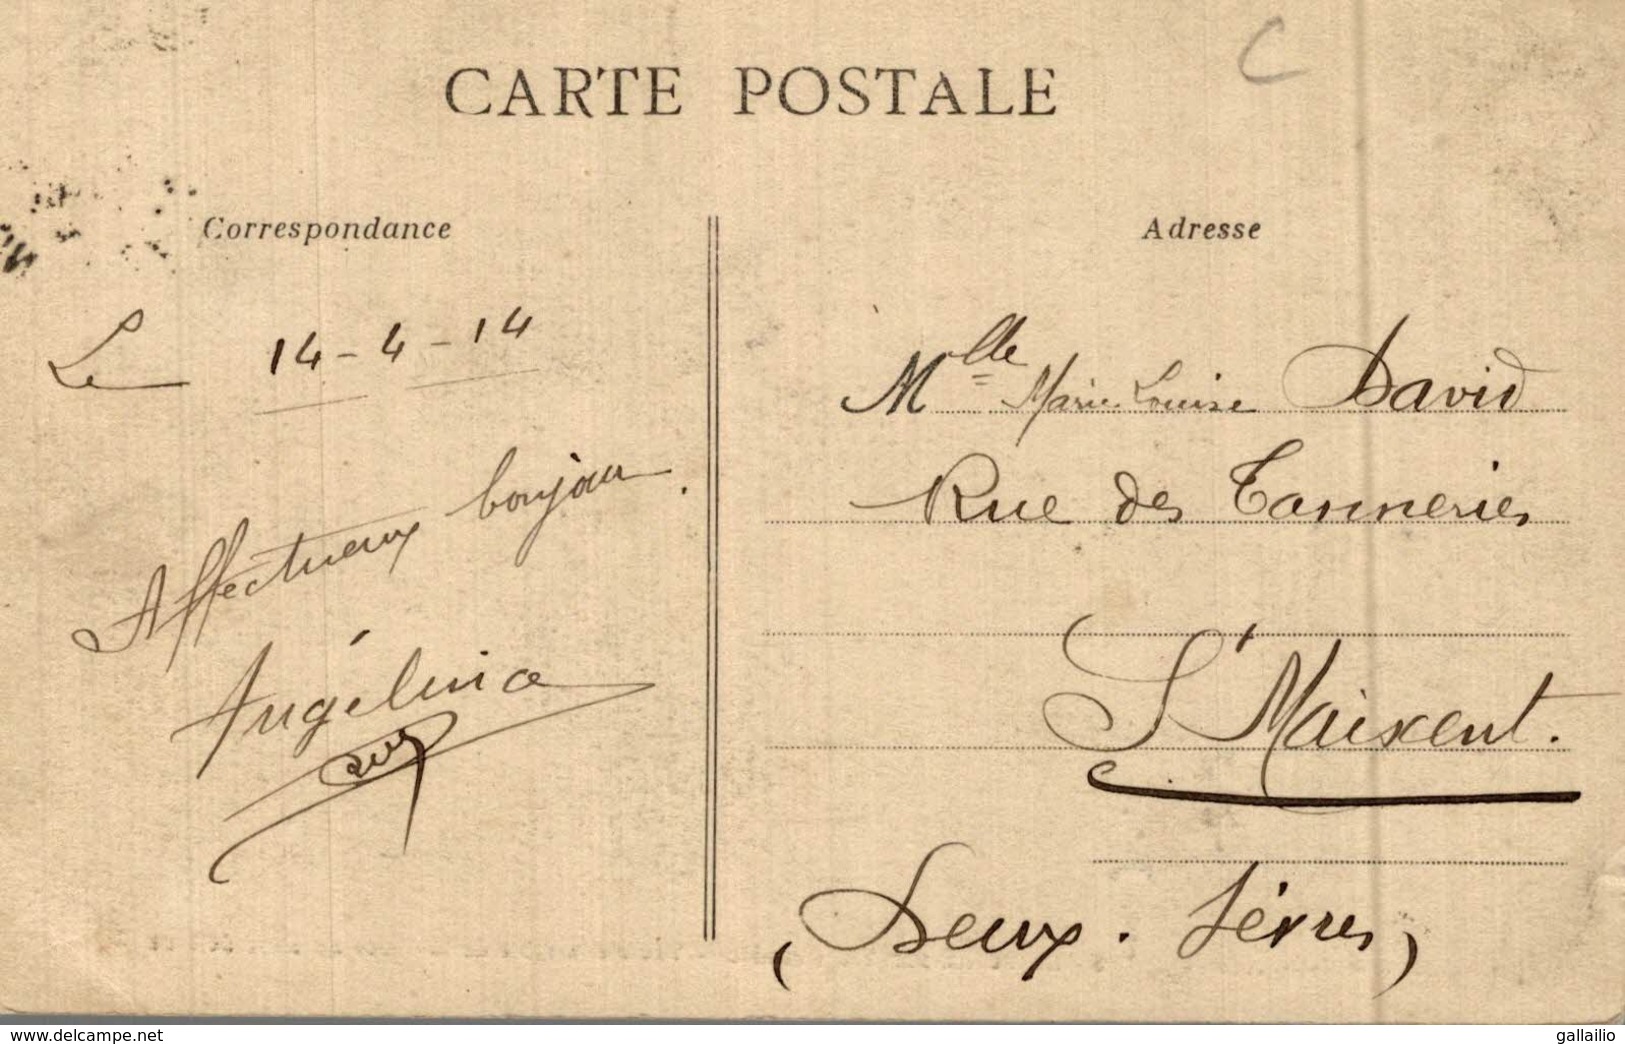 C
CARTE POSTALE
Correspondance
Le 14-4-14
Affectueux bonjour.
Angélina
Adresse
Mlle Marie Louise David
Rue des Tanneries
St Maixent.
(Deux-Sèvres)
www.delcampe.net
gallailio